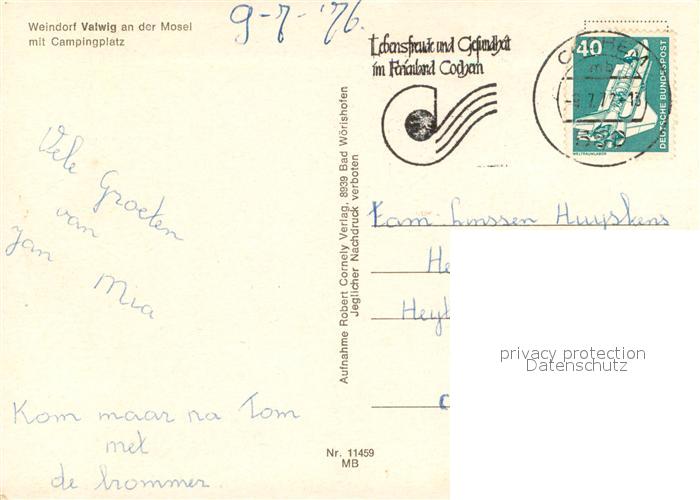 Weindorf Valwig an der Mosel
mit Campingplatz
9-7-'76.
Lebensfreude und Gesundheit
im Ferienland Cochem
COCHEM
mb
40
DEUTSCHE BUNDESPOST
WELTRAUMLABOR
Vele Groeten
van
Jan Mia
Kom maar na Tom
met
de brommer.
Aufnahme Robert Cornely Verlag, 8939 Bad Wörishofen
Jeglicher Nachdruck verboten
Nr. 11459
MB
Fam. Linssen Huyskens
He
Heyt
privacy protection
Datenschutz